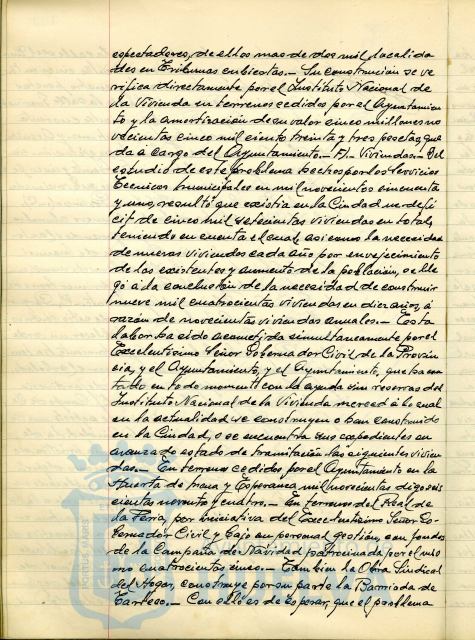 espectadores, de ellos mas de dos mil, localida
des en Tribunas cubiertas.- Su construcion se ve
rifica directamente por el Instituto Nacional de
la Vivienda en terrenos cedidos por el Ayuntamien
to y la amortización de su valor cinco millones no
vecientas cinco mil ciento treinta y tres pesetas, que
da á cargo del Ayuntamiento.- Viviendas.- Del
estudio de este problema hechos por los Servicios
Tecnicos municipales en mil novecientos cincuenta
y uno, resultó que existia en la Ciudad un defi
cit de cinco mil setecientas viviendas en total,
teniendo en cuenta el cual, asi como la necesidad
de nuevas viviendas cada año por envejecimiento
de las existentes y aumento de la población, se lle
gó á la conclusión de la necesidad de construir
nueve mil cuatrocientas viviendas en diez años, á
razón de novecientas viviendas anuales.- Esta
labor ha sido acometida simultaneamente por el
Excelentisimo Señor Gobernador Civil de la Provin
cia, y el Ayuntamiento, y el Ayuntamiento, que ha con
tado en todo momento con la ayuda sin reservas del
Instituto Nacional de la Vivienda merced á lo cual
en la actualidad se construyen o han construido
en la Ciudad, o se encuentra sus expedientes en
avanzado estado de tramitación las siguientes vivien
das.- En terrenos cedidos por el Ayuntamiento en la
Huerta de y Esperanza mil novecientas
cientas noventa y cuatro.- En terrenos del Real de
la Feria, por iniciativa del Excelentisimo Señor Go
bernador Civil y bajo su personal gestión, con fondos
de la Campaña de Navidad patrocinada por el mis
mo cuatrocientas cinco.- Tambien la Obra Sindical
del Hogar, construye por su parte la Barriada de
Carteso.- Con ello es de esperar, que el problema